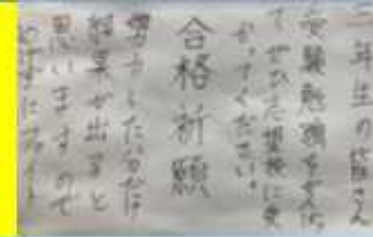 三年生の皆さん
受験勉強を
て ぜひ志望校に受
かってください。
合格祈願
努力した分だけ
結果が出ると
思いますので